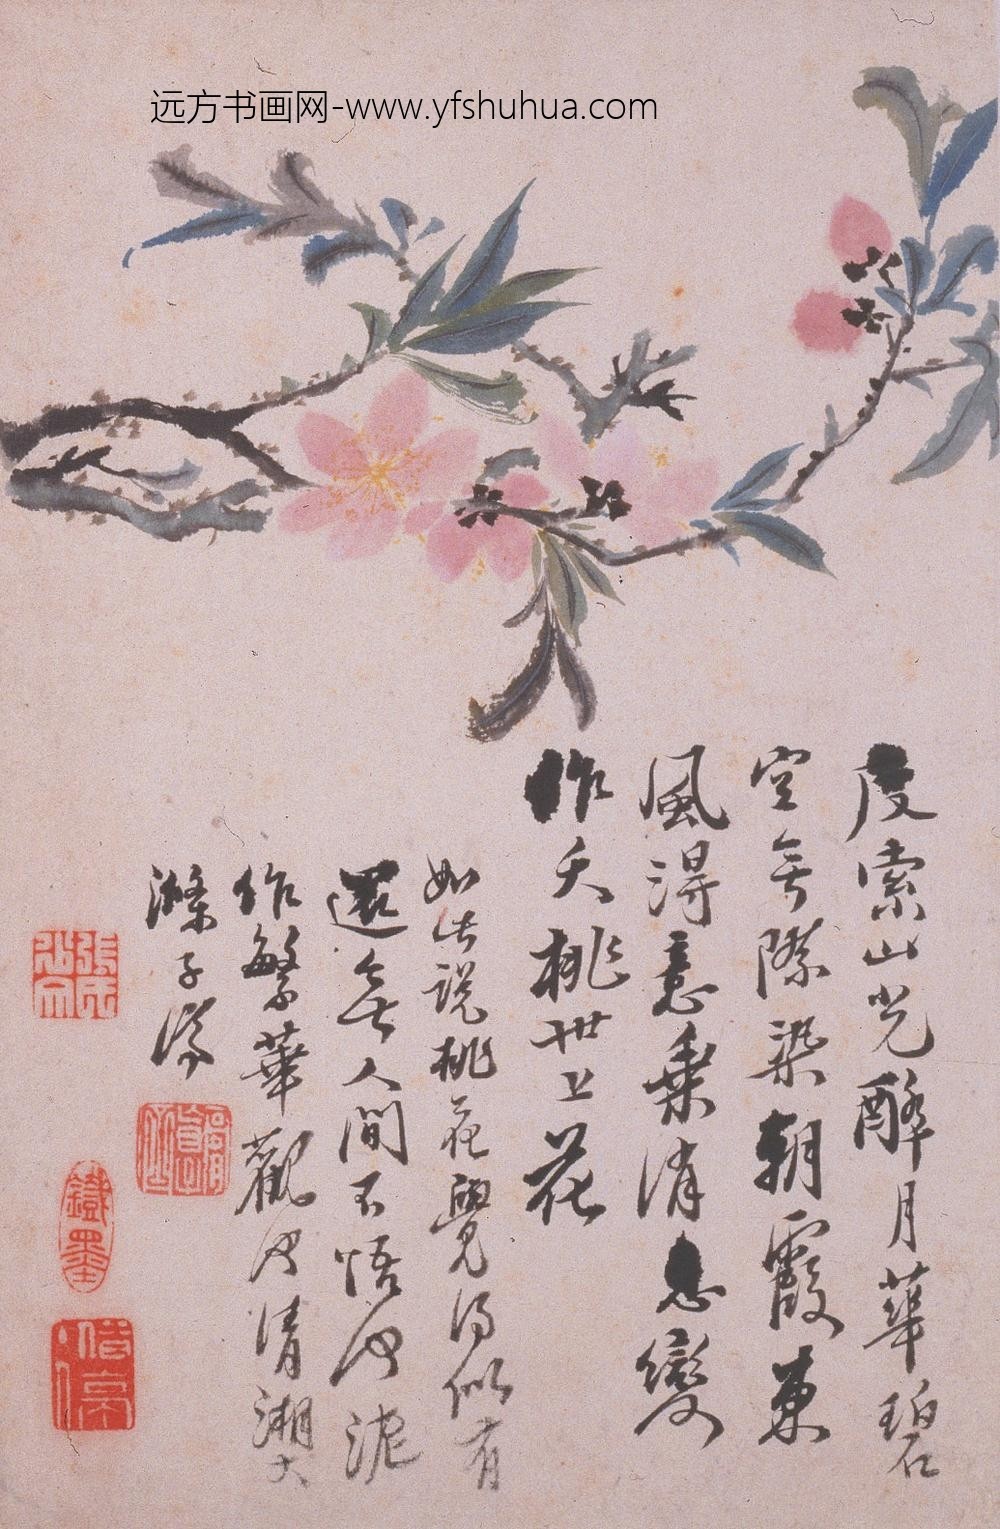 远方书画网-www.yfshuhua.com
度索山光醉月華碧
空無際染朝霞東
風得意乘消息變
作夭桃世上花
如此説桃花覺得似有
還無人間不悟何泥
作繁華觀何清湘大
滌子濟
鐵墨